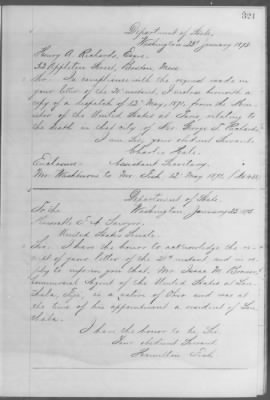 321
Department of State,
Washington 28 January 1873
Henry A. Richards, Esqre.
32 Appleton Street, Boston Mass
Sir. In compliance with the request made in
your letter of the instant, I enclose herewith a
copy of a despatch of 12 May, 1872, from the Min-
ister of the United States at Paris, relating to
the death in that city of Mr. George
I am, Sir, your obedient Servant.
Charles Hale.
Enclosure: Assistant Secretary.
Mr. Washburne to Mr. Fish 12 May 1872 / No.
Department of State.
To the Washington January 28
Honorable F. A. Sawyer,
United States Senate.
Sir. I have the honor to acknowledge the re-
ceipt of your letter of the instant and in re-
ply to inform you that Mr. Isaac M. Brower
Commercial Agent of the United States at Le-
vuka, Fiji, is a native of and was at
the time of his appointment a resident of Le-
vuka.
I have the honor to be, Sir
Your obedient Servant
Hamilton Fish